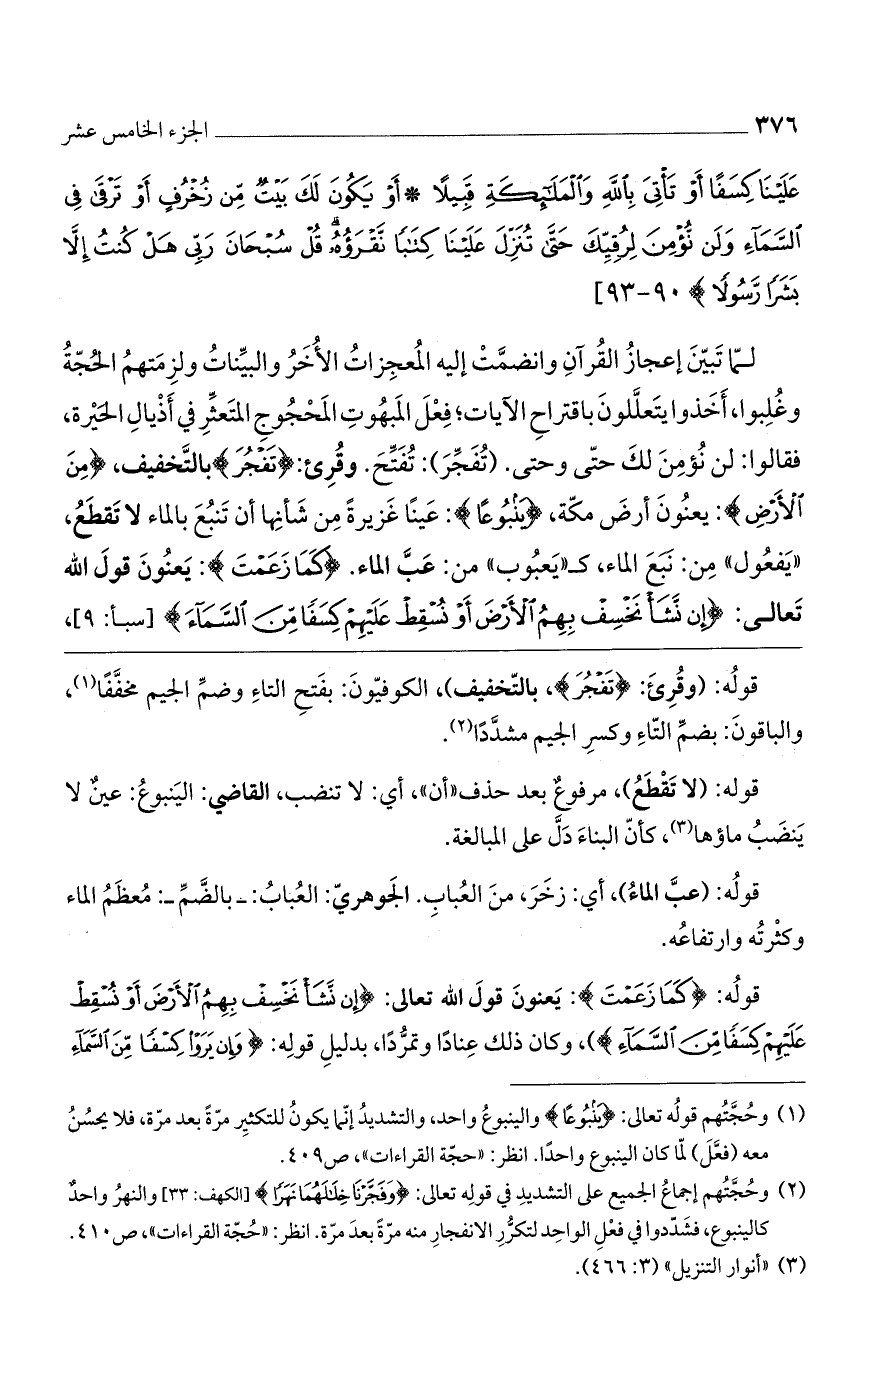 ٣٧٦ الجزء الخامس عشر
عَلَيْنَا كِسَفًا أَوْ تَأْتِيَ بِٱللَّهِ وَٱلْمَلَٰٓئِكَةِ قَبِيلًا * أَوْ يَكُونَ لَكَ بَيْتٌ مِّن زُخْرُفٍ أَوْ تَرْقَىٰ فِي
ٱلسَّمَآءِ وَلَن نُّؤْمِنَ لِرُقِيِّكَ حَتَّىٰ تُنَزِّلَ عَلَيْنَا كِتَٰبًا نَّقْرَؤُهُۥ ۗ قُلْ سُبْحَانَ رَبِّى هَلْ كُنتُ إِلَّا
بَشَرًا رَّسُولًا ﴾ ٩٠-٩٣]
لـمّا تَبيّنَ إعجازُ القُرآنِ وانضمَّتْ إليه المُعجِزاتُ الأُخَرُ والبيِّناتُ ولزِمَتهمُ الحُجّةُ
وغُلِبوا، أَخَذوا يَتعلَّلونَ باقتراحِ الآيات؛ فِعْلَ المَبهُوتِ المَحْجُوجِ المُتَعثِّرِ في أَذْيالِ الحَيْرة،
فقالوا: لن نُؤمِنَ لكَ حتّى وحتى. (تُفَجِّرَ): تُفَتِّحَ. وقُرِئ: ﴿تَفْجُرَ﴾ بالتَّخفيف، ﴿مِنَ
ٱلْأَرْضِ﴾: يعنُونَ أرضَ مكّة، ﴿يَنۢبُوعًا﴾: عَينًا غَزيرةً مِن شَأنِها أن تَنبُعَ بالماء لا تَقطَعُ،
«يَفعُول» مِن: نَبَعَ الماء، كـ«يَعبُوب» من: عَبَّ الماء. ﴿كَمَا زَعَمْتَ﴾: يَعنُونَ قولَ الله
تَعالـى: ﴿إِن نَّشَأْ نَخْسِفْ بِهِمُ ٱلْأَرْضَ أَوْ نُسْقِطْ عَلَيْهِمْ كِسَفًا مِّنَ ٱلسَّمَآءِ﴾ [سبـأ: ٩]،
قولُه: (وقُرِئَ: ﴿تَفْجُرَ﴾، بالتّخفيف)، الكوفيّونَ: بفَتحِ التاءِ وضمِّ الجيم مخفَّفًا(١)،
والباقونَ: بضمِّ التّاءِ وكسرِ الجيم مشدَّدًا(٢).
قوله: (لا تَقْطَعُ)، مرفوعٌ بعد حذف«أن»، أي: لا تنضب، القاضي: اليَنبوعُ: عينٌ لا
يَنضَبُ ماؤها(٣)، كأنّ البناءَ دَلَّ على المبالغة.
قولُه: (عبَّ الماءُ)، أي: زخَرَ، منَ العُبابِ. الجَوهريّ: العُبابُ: ـ بالضَّمِّ ـ: مُعظَمُ الماء
وكثْرتُه وارتفاعُه.
قولُه: ﴿كَمَا زَعَمْتَ﴾: يَعنونَ قولَ الله تعالى: ﴿إِن نَّشَأْ نَخْسِفْ بِهِمُ ٱلْأَرْضَ أَوْ نُسْقِطْ
عَلَيْهِمْ كِسَفًا مِّنَ ٱلسَّمَآءِ﴾)، وكان ذلك عِنادًا وتمرُّدًا، بدليلِ قولِه: ﴿وَإِن يَرَوْا۟ كِسْفًا مِّنَ ٱلسَّمَآءِ
(١) وحُجَّتُهم قولُه تعالى: ﴿يَنۢبُوعًا﴾ والينبوعُ واحد، والتشديدُ إنّما يكونُ للتكثيرِ مرّةً بعد مرّة، فلا يحسُنُ
معه (فعَّلَ) لمّا كان الينبوع واحدًا. انظر: «حجّة القراءات»، ص٤٠٩.
(٢) وحُجَّتُهم إجماعُ الجميع على التشديدِ في قولِه تعالى: ﴿وَفَجَّرْنَا خِلَٰلَهُمَا نَهَرًا﴾ [الكهف: ٣٣] والنهرُ واحدٌ
كالينبوع، فشَدّدوا في فعْلِ الواحِد لتكرُّرِ الانفجارِ منه مرّةً بعدَ مرّة. انظر: «حُجّة القراءات»، ص٤١٠.
(٣) «أنوار التنزيل» (٣: ٤٦٦).